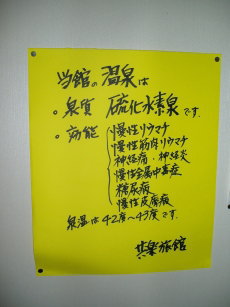 当館の温泉は
○泉質 硫化水素泉です。
○効能 慢性リウマチ
慢性筋肉リウマチ
神経痛・神経炎
慢性金属中毒症
糖尿病
慢性皮膚病
泉温は42度〜43度です。
共楽旅館